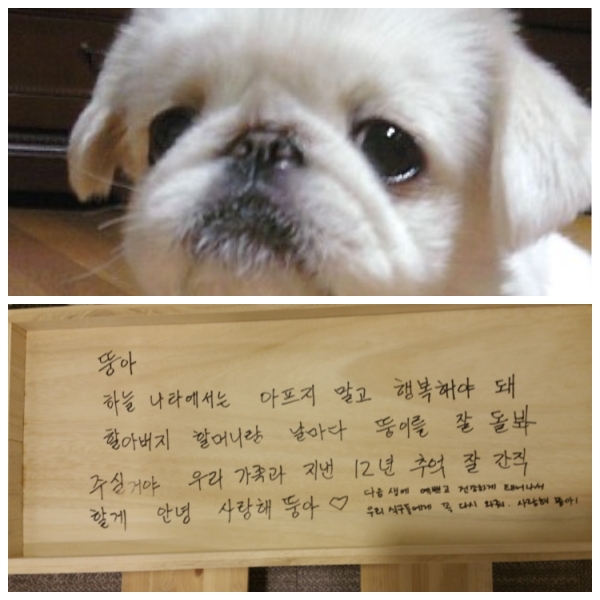 뚱아
하늘 나라에서는 아프지 말고 행복해야 돼
할아버지 할머니랑 날마다 뚱이를 잘 돌봐
주실거야 우리 가족과 지낸 12년 추억 잘 간직
할게 안녕 사랑해 뚱아 ♡
다음 생에 예쁘고 건강하게 태어나서
우리 식구들에게 꼭 다시 와줘. 사랑해 뚱아!